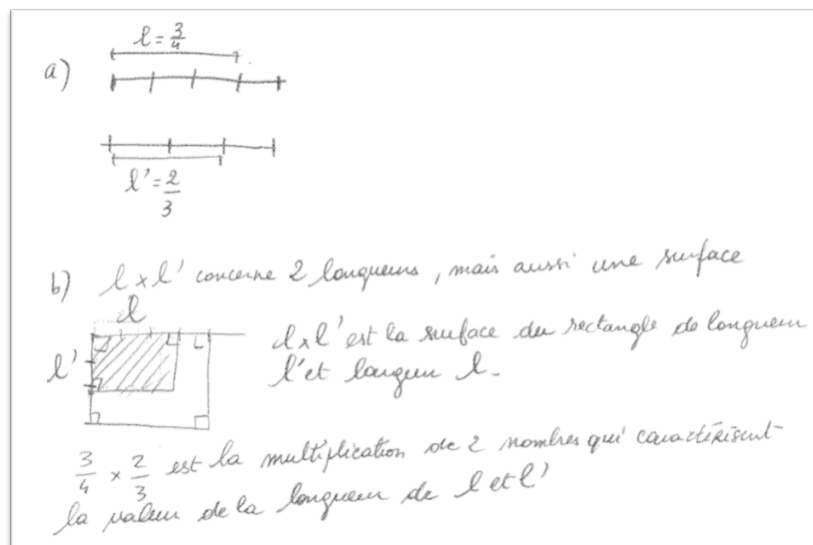 l = 3/4
a)
l' = 2/3
b) l x l' concerne 2 longueurs, mais aussi une surface
l
l x l' est la surface du rectangle de longueur
l'
l' et largeur l.
3/4 x 2/3 est la multiplication de 2 nombres qui caractérisent
la valeur de la longueur de l et l'